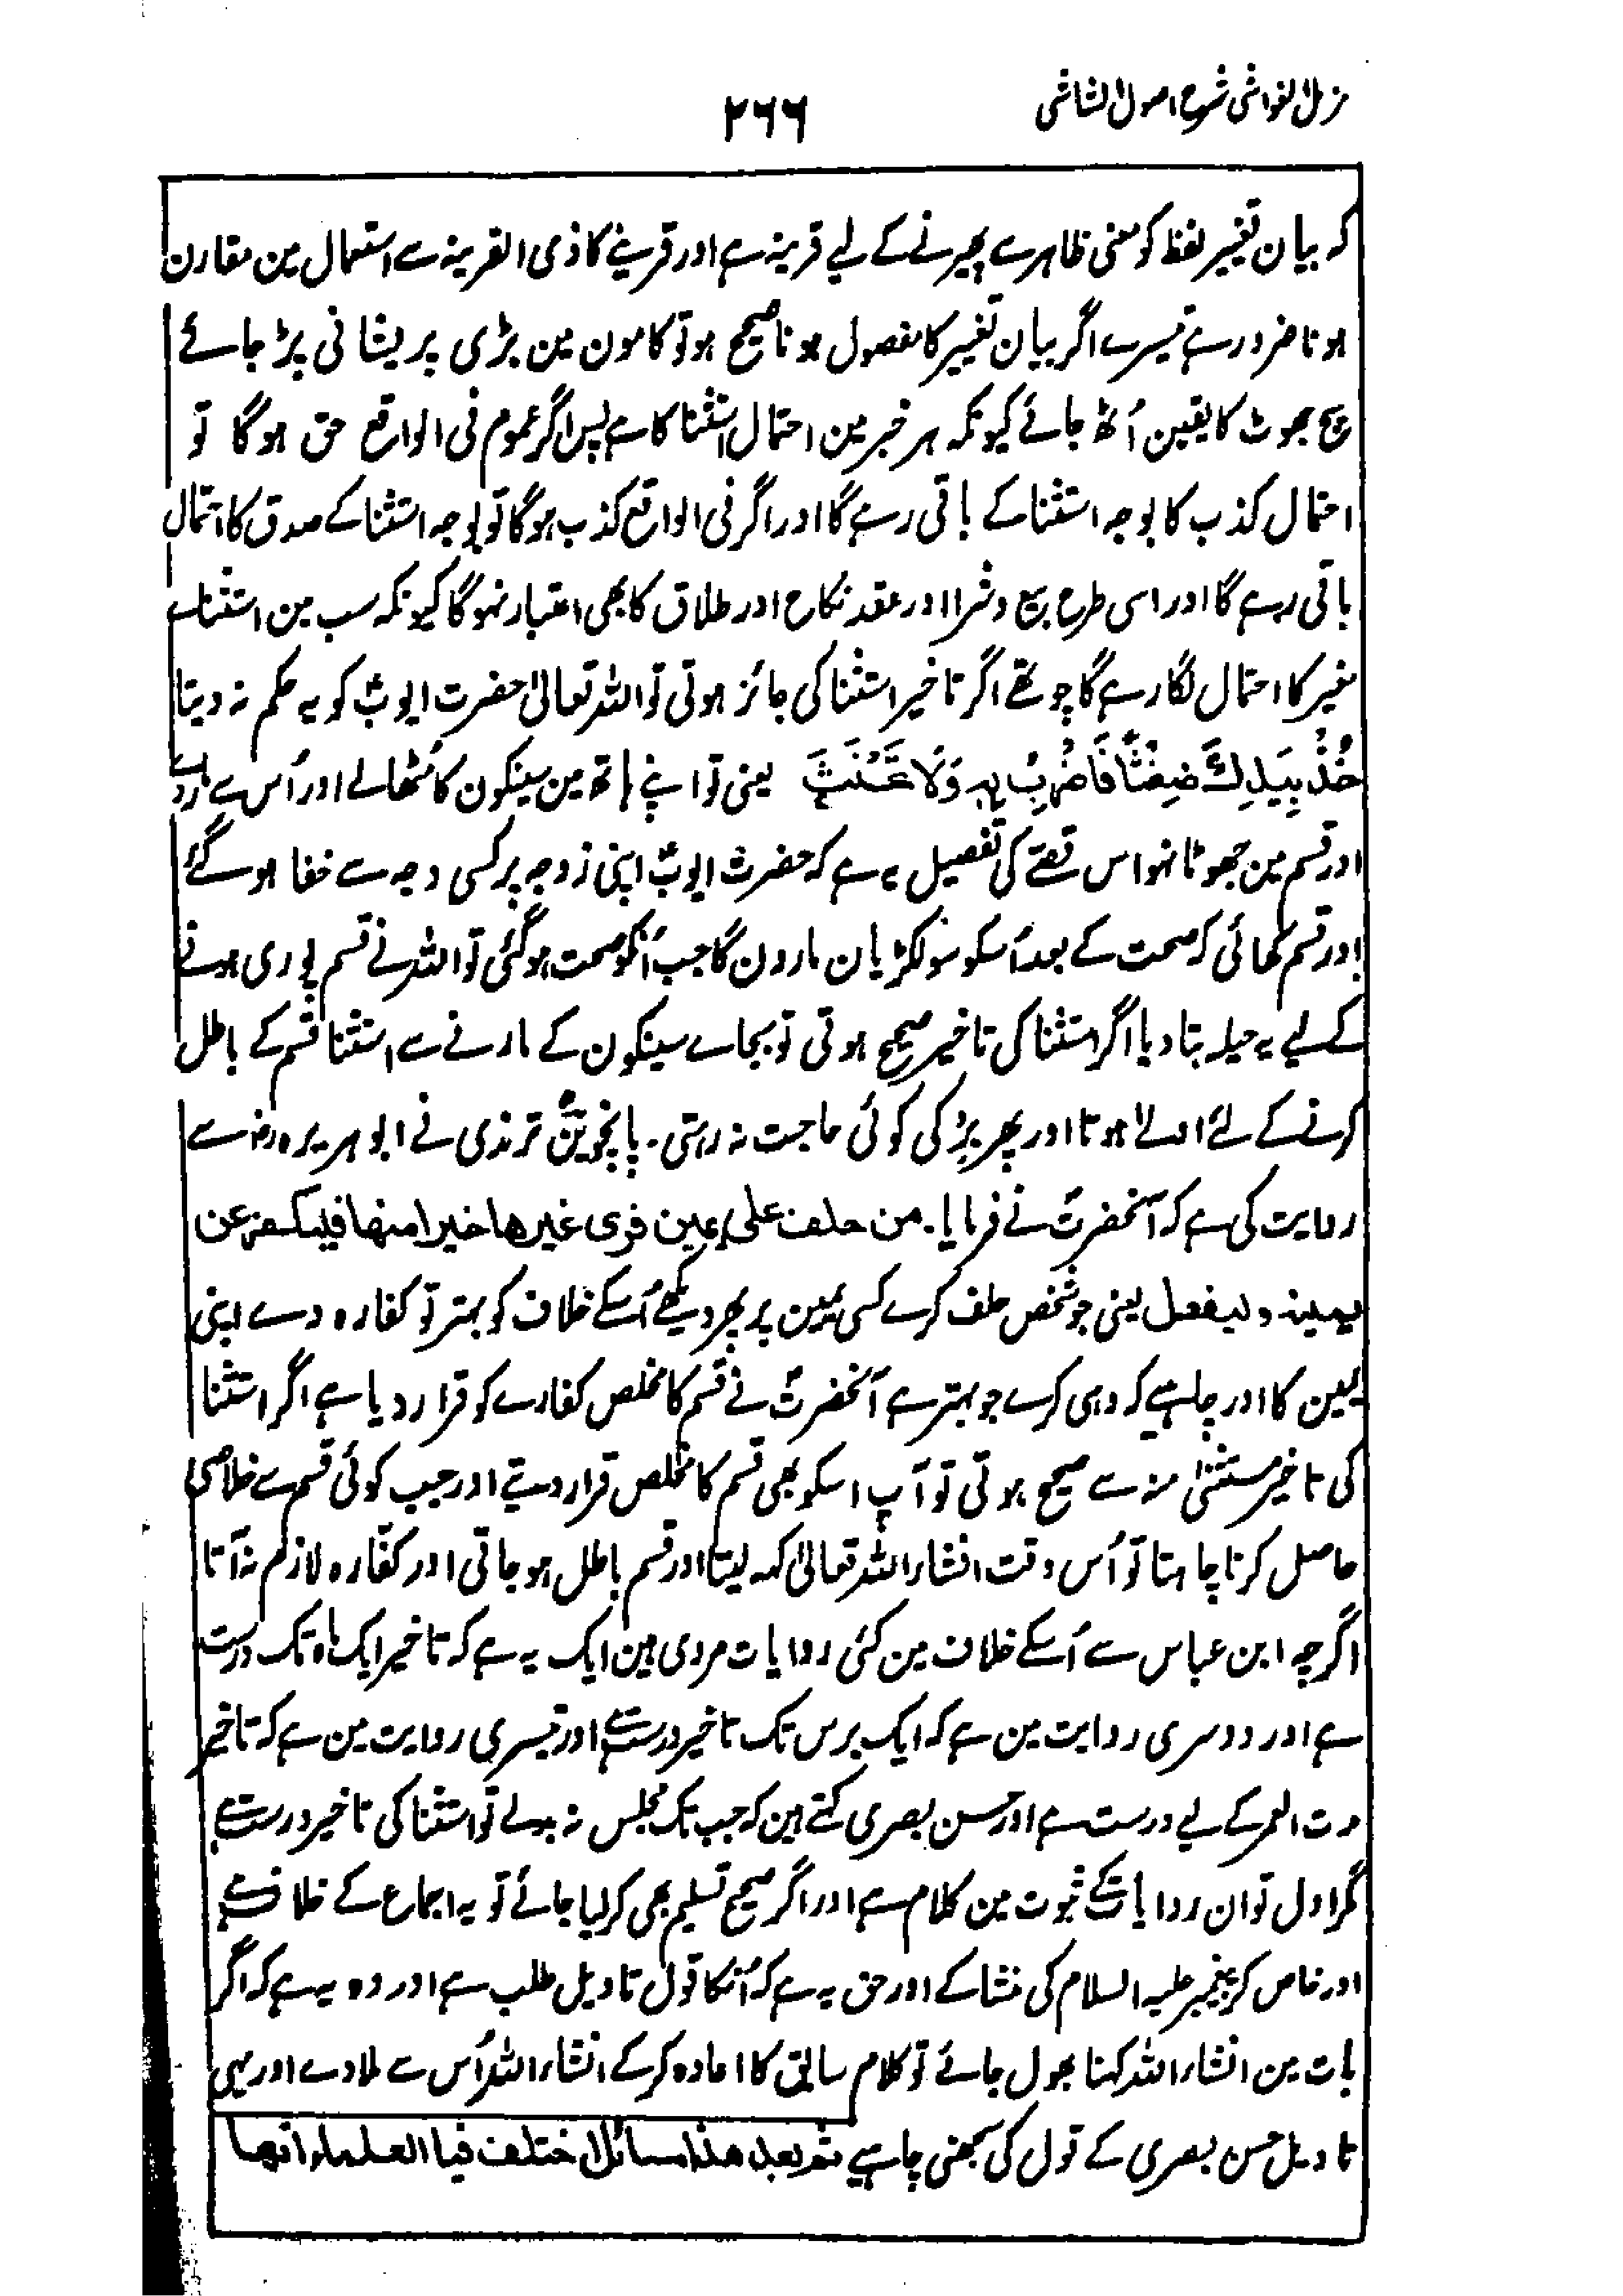 مزیل الغواشی شرح اصول الشاشی
۲۶۶
کہ بیان تغییر لفظ کو معنی ظاہر سے پھیرنے کے لیے قرینہ ہے اور قرینے کا ذی القرینہ سے استعمال مین مقارن
ہونا ضرور ہے تیسرے اگر بیان تغییر کا مفصول ہونا صحیح ہو تو کامون مین بڑی پریشانی پڑ جائے
سچ جھوٹ کا یقین اُٹھ جائے کیونکہ ہر خبر مین احتمال استثنا کا ہے پس اگر عموم فی الواقع حق ہوگا تو
احتمال کذب کا بوجہ استثنا کے باقی رہے گا اور اگر فی الواقع کذب ہوگا تو بوجہ استثنا کے صدق کا احتمال
باقی رہے گا اور اسی طرح بیع و شرا اور عقد نکاح اور طلاق کا بھی اعتبار نہوگا کیونکہ سب مین استثناے
مغیر کا احتمال لگا رہے گا چوتھے اگر تاخیر استثنا کی جائز ہوتی تو اللہ تعالیٰ حضرت ایوبؑ کو یہ حکم نہ دیتا
خُذْ بِیَدِكَ ضِغْثًا فَاضْرِبْ بِهٖ وَلَا تَحْنَثْ یعنی تو اپنے ہاتھ مین سینکون کا مُٹھا لے اور اُس سے مار دے
اور قسم مین جھوٹا نہو اس قصے کی تفصیل یہ ہے کہ حضرت ایوبؑ اپنی زوجہ پر کسی وجہ سے خفا ہو گئے
اور قسم کھائی کہ صحت کے بعد اُسکو سو لکڑیان مارون گا جب اُنکو صحت ہوگئی تو اللہ نے قسم پوری ہونے
کے لیے یہ حیلہ بتا دیا اگر استثنا کی تاخیر صحیح ہوتی تو بجاے سینکون کے مارنے سے استثنا قسم کے باطل
کرنے کے لئے اولے ہوتا اور پھر بِرّ کی کوئی حاجت نہ رہتی۔ پانچوین ترمذی نے ابو ہریرہ رضؓ سے
روایت کی ہے کہ آنحضرتؐ نے فرمایا۔ من حلف علی یمین فری غیرھا خیرا منھا فلیکفر عن
یمینہ ولیفعل یعنی جو شخص حلف کرے کسی یمین پر پھر دیکھے اُسکے خلاف کو بہتر تو کفارہ دے اپنی
یمین کا اور چاہیے کہ وہی کرے جو بہتر ہے آنحضرتؐ نے قسم کا مخلص کفارے کو قرار دیا ہے اگر استثنا
کی تاخیر مستثنیٰ منہ سے صحیح ہوتی تو آپ اسکو بھی قسم کا مخلص قرار دیتے اور جب کوئی قسم سے خلاصی
حاصل کرنا چاہتا تو اُس وقت انشاء اللہ تعالیٰ کہہ لیتا اور قسم باطل ہو جاتی اور کفّارہ لازم نہ آتا
اگرچہ ابن عباس سے اُسکے خلاف مین کئی روایات مروی ہین ایک یہ ہے کہ تاخیر ایک ماہ تک درست
ہے اور دوسری روایت مین ہے کہ ایک برس تک تاخیر درست ہے اور تیسری روایت مین ہے کہ تاخیر
مدت العمر کے لیے درست ہے اور حسن بصری کہتے ہین کہ جب تک مجلس نہ بدلے تو استثنا کی تاخیر درست ہے
مگر اول تو ان روایات کے ثبوت مین کلام ہے اور اگر صحیح تسلیم بھی کر لیا جائے تو یہ اجماع کے خلاف ہے
اور خاص کر پیغمبر علیہ السلام کی منشا کے اور حق یہ ہے کہ اُنکا قول تاویل طلب ہے اور وہ یہ ہے کہ اگر
بات مین انشاء اللہ کہنا بھول جائے تو کلام سابق کا اعادہ کرکے انشاء اللہ اُس سے ملا دے اور یہی
تاویل حسن بصری کے قول کی سمجھنی چاہیے ثم بعد ھذا مسائل اختلف فیھا العلماء انھا